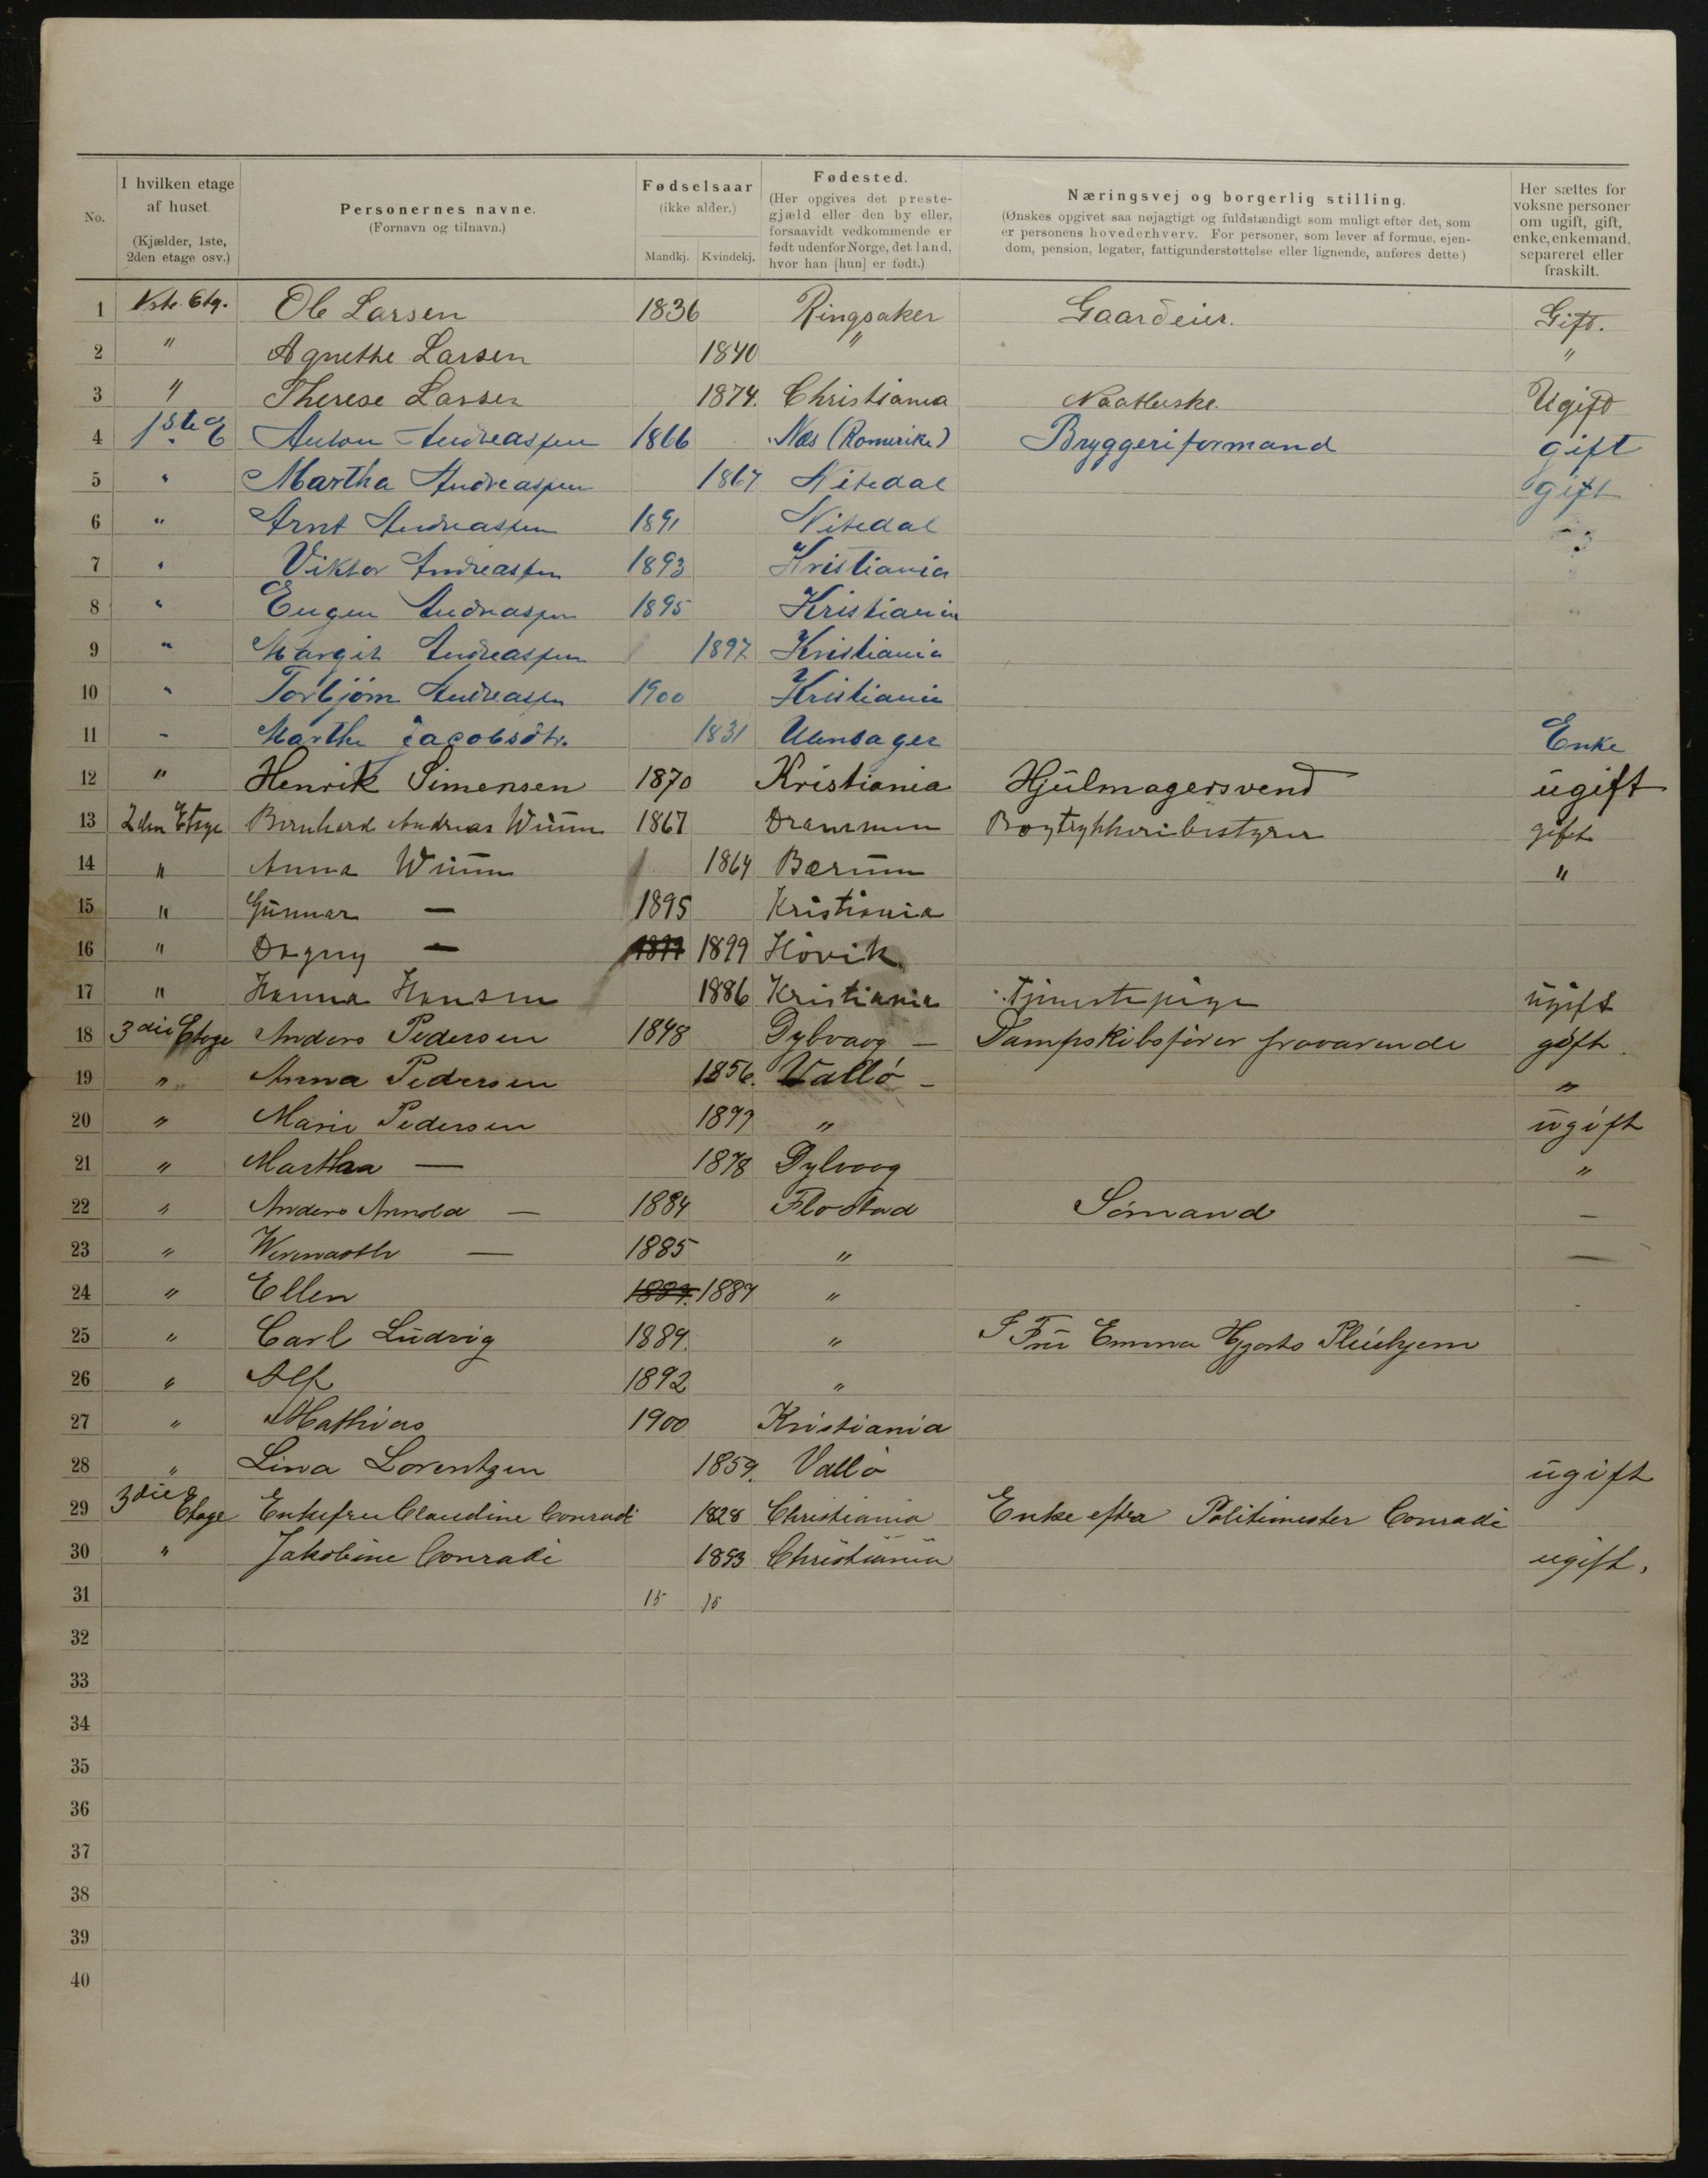 No.
I hvilken etage af huset. (Kjælder, 1ste, 2den etage osv.)
Personernes navne. (Fornavn og tilnavn.)
Fødselsaar (ikke alder.) Mandkj. Kvindekj.
Fødested. (Her opgives det prestegjæld eller den by eller, forsaavidt vedkommende er født udenfor Norge, det land, hvor han [hun] er født.)
Næringsvej og borgerlig stilling. (Ønskes opgivet saa nøjagtigt og fuldstændigt som muligt efter det, som er personens hovederhverv. For personer, som lever af formue, ejendom, pension, legater, fattigunderstøttelse eller lignende, anføres dette)
Her sættes for voksne personer om ugift, gift, enke, enkemand, separeret eller fraskilt.
1 1ste Etg. Ole Larsen 1836 Ringsaker Gaardeier. Gift.
2 " Agnethe Larsen 1840 " "
3 " Therese Larsen 1874. Christiania Ugift
4 1ste E Anton Andreassen 1866 Næs (Romerike) Bryggeriformand gift
5 " Martha Andreassen 1867 Nitedal gift
6 " Arnt Andreassen 1891 Nitedal
7 " Viktor Andreassen 1893 Kristiania
8 " Eugen Andreassen 1895 Kristiania
9 " Margit Andreassen 1897 Kristiania
10 " Torbjörn Andreassen 1900 Kristiania
11 - Marthe Jacobsdtr. 1831 Ullensager Enke
12 " Henrik Simensen 1870 Kristiania Hjulmagersvend ugift
13 2den Etage Bernhard Andreas Wium 1867 Drammen Bogtrykkeribestyrer gift
14 " Anna Wium 1864 Bærum "
15 " Gunnar — 1895 Kristiania
16 " Dagny — 1899 Hövik.
17 " Hanna Hansen 1886 Kristiania Tjenestepige ugift
18 3die Etage Anders Pedersen 1848 Dybvaag - Dampskibsförer fraværende gift.
19 " Anna Pedersen 1856. Vallö - "
20 " Marie Pedersen 1877 " ugift
21 " Martha — 1878 Dybvaag "
22 " Anders Arnold — 1884 Flostad Sömand —
23 " — 1885 " —
24 " Ellen 1887 " -
25 " Carl Ludvig 1889. " I Fru Emma Hjorts Pleiehjem
26 " Alf 1892 "
27 " Mathias 1900 Kristiania
28 " Lina Lorentzen 1859. Vallö ugift
29 3die Etage Enkefru Claudine Conradi 1828 Christiania Enke efter Politimester Conradi
30 " Jakobine Conradi 1853 Christiania ugift.
31 15 15
32
33
34
35
36
37
38
39
40